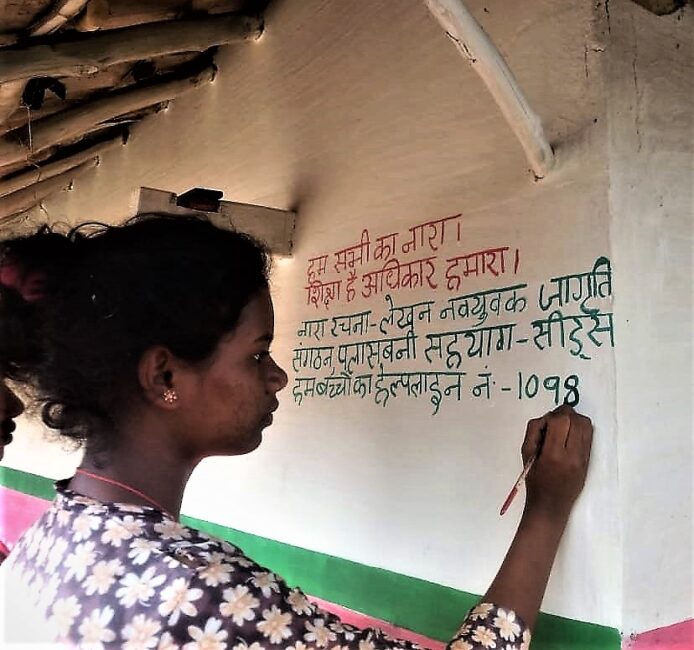 हम सभी का नारा।
शिक्षा है अधिकार हमारा।
नारा रचना-लेखन नवयुवक जागृति
संगठन पलासबनी सहयाग-सीड्स
हम बच्चों का हेल्पलाइन नं.-1098